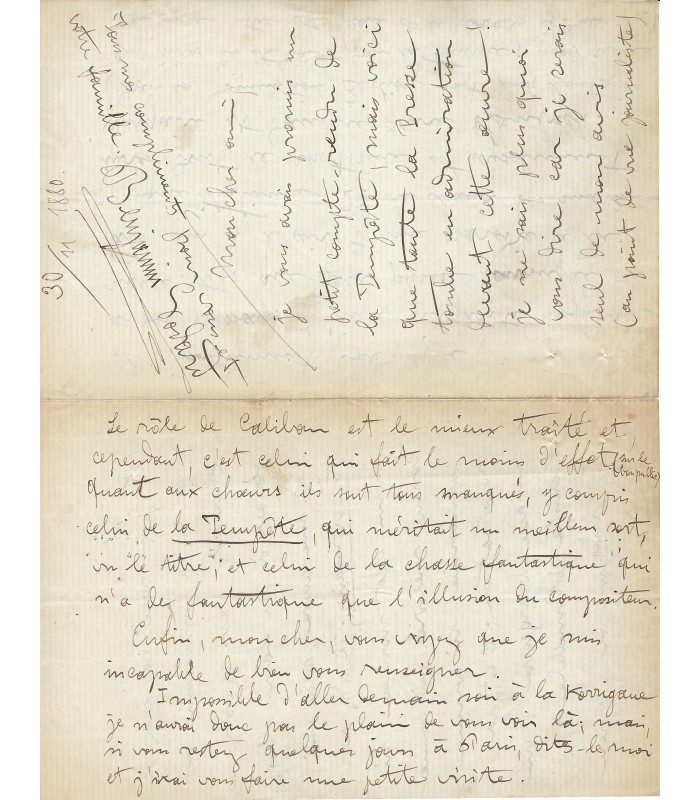 30/11 1880.
Mon cher ami
je vous avais promis un
petit compte-rendu de
la Tempête, mais voici
que toute la Presse
tombe en admiration
devant cette œuvre!
je ne sais plus quoi
vous dire car je serais
seul de mon avis
(au point de vue journaliste)
Le rôle de Caliban est le mieux traîté et
cependant, c'est celui qui fait le moins d'effet (sur le
bon public)
quant aux chœurs ils sont tous manqués, y compris
celui de la Tempête, qui méritait un meilleur sort,
vu "le titre", et celui de la chasse fantastique qui
n'a de fantastique que l'illusion du compositeur.
Enfin, mon cher, vous voyez que je suis
incapable de bien vous renseigner.
Impossible d'aller demain soir à la Korrigane
je n'aurai donc pas le plaisir de vous voir là; mais,
si vous restez quelques jours à Paris, dites-le moi
et j'irai vous faire une petite visite.
compliments pour
votre famille.